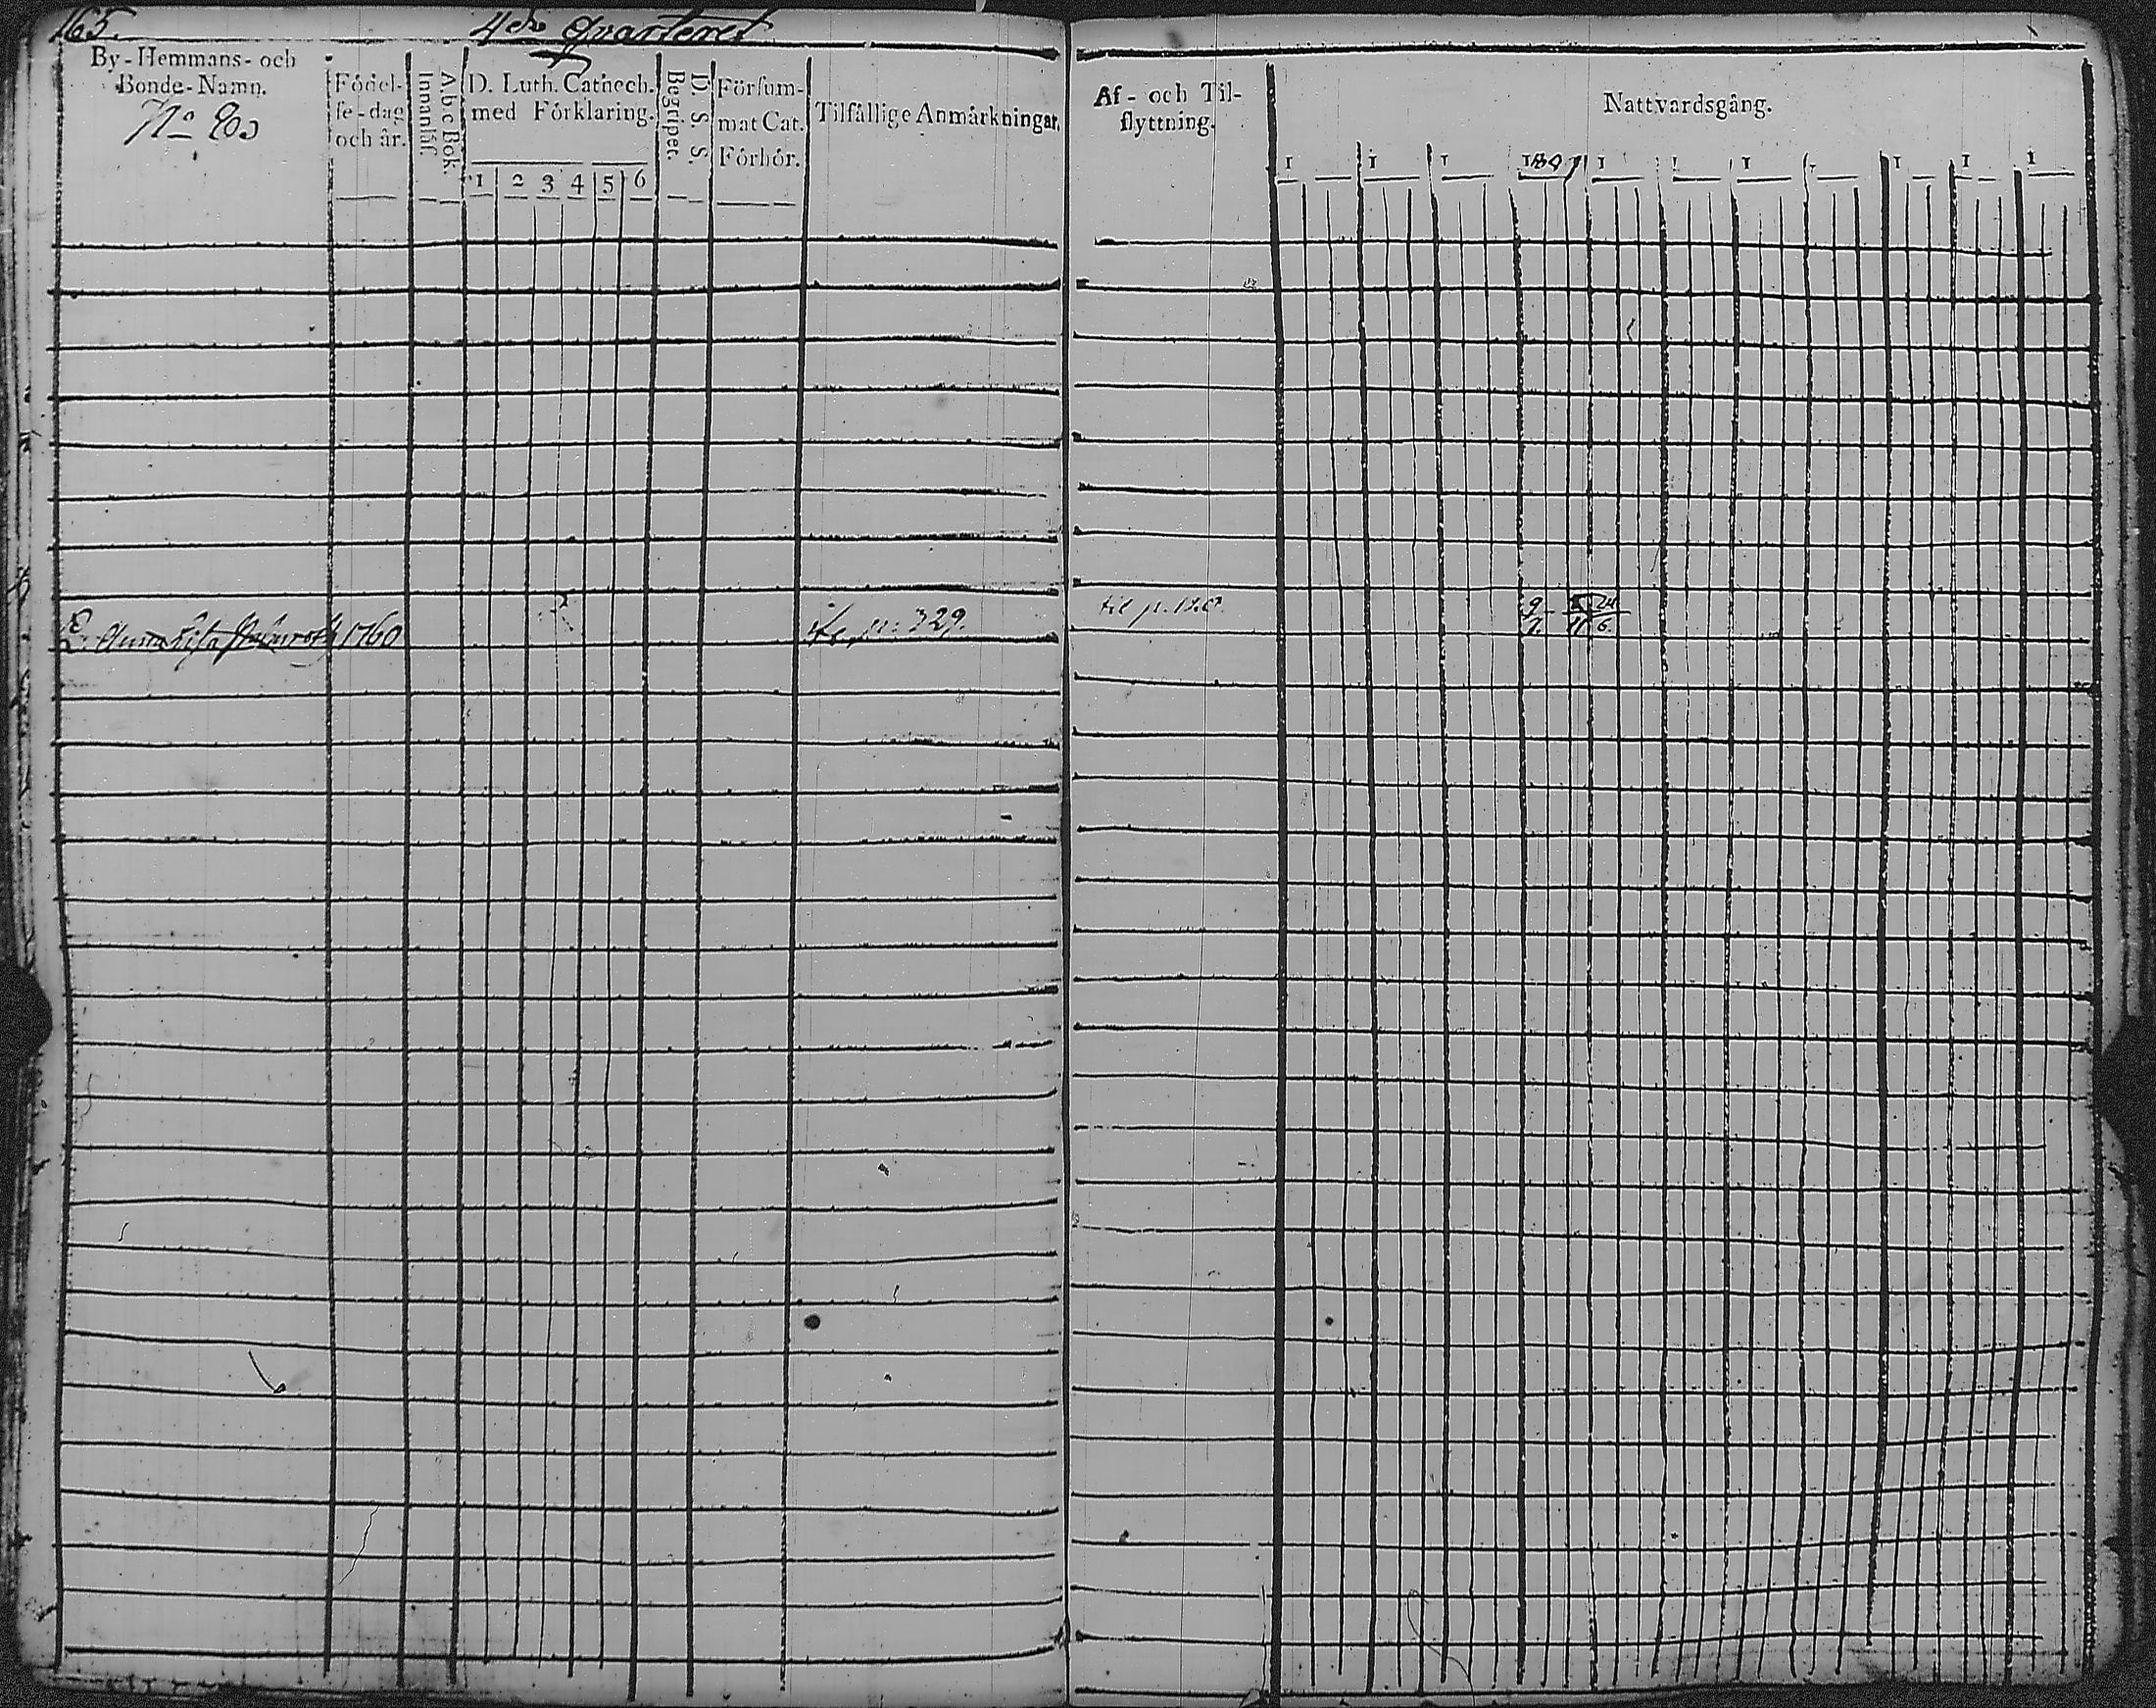 165.
4de Qvarteret
By-Hemmans- och Bonde-Namn.
No 203
Födel-se-dag och år.
Innanläs.
Abc Bok.
D. Luth. Cathech. med Förklaring.
1 2 3 4 5 6
Begripet.
D. S. S.
Försum-mat Cat. Förhör.
Tilfällige Anmärkningar.
Af- och Til-flyttning.
Nattvardsgång.
1 1 1 1807 1 1 1 1 1 1 1
E. Anna Lisa 1760
329.
til p. 120
9 24
7. 11 6.